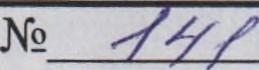 № 141